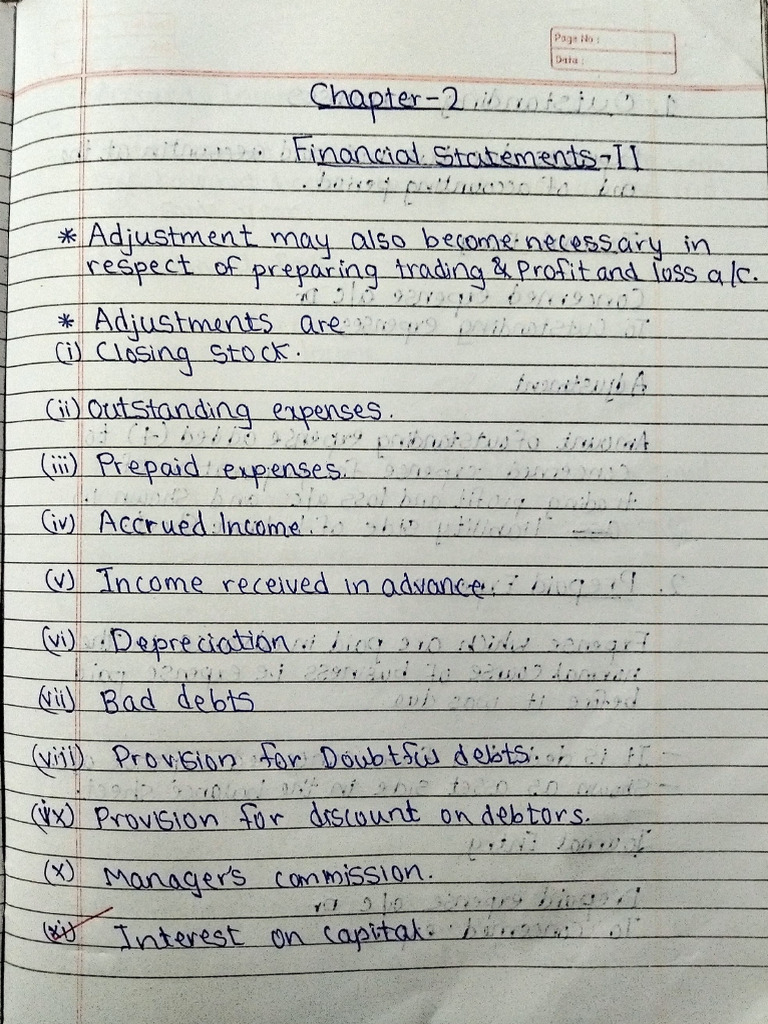 Page No :
Date :
Chapter-2
Financial Statements-II
* Adjustment may also become necessary in
respect of preparing trading & Profit and loss a/c.
* Adjustments are
(i) Closing stock.
(ii) Outstanding expenses.
(iii) Prepaid expenses.
(iv) Accrued Income.
(v) Income received in advance.
(vi) Depreciation
(vii) Bad debts
(viii) Provision for Doubtful debts.
(ix) Provision for discount on debtors.
(x) Manager's commission.
(xi) Interest on capital.